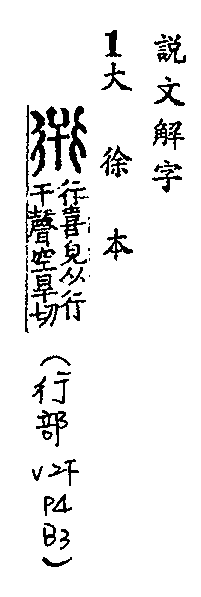 説文解字
1大徐本
衎
行喜皃从行
干聲空旱切
(行部 V2下 P4 B3)